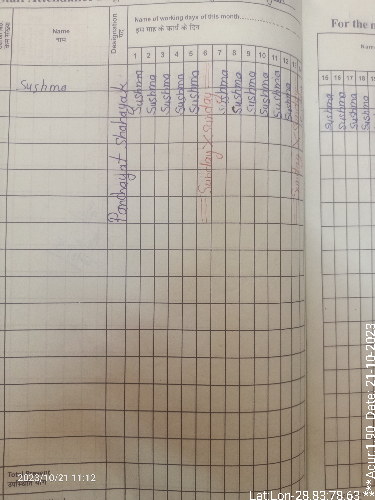 For the m
Name of working days of this month
इस माह के कार्य के दिन
Name
नाम
Designation
पद
1 2 3 4 5 6 7 8 9 10 11 12
15 16 17 18 19
Sushma
Panchayat Shahayak
Sushma Sushma Sushma Sushma Sushma
Sunday X Sunday
Sushma Sushma Sushma Sushma Sushma Sushma
Sushma Sushma Sushma Sushma
2023/10/21 11:12
Lat:Lon-28.83:78.63
***Acur:1.90 Date: 21-10-2023